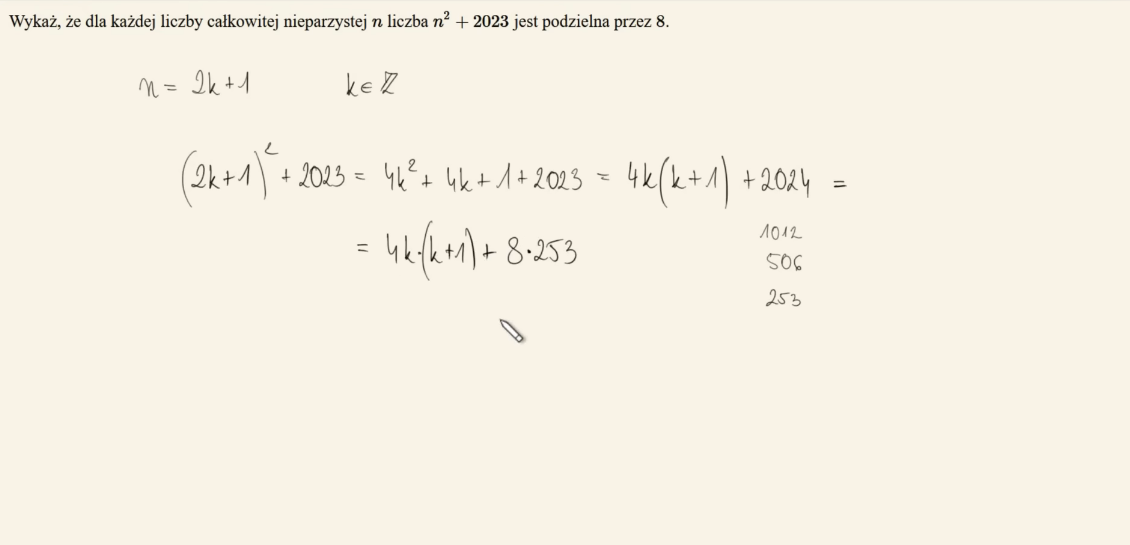 Wykaż, że dla każdej liczby całkowitej nieparzystej n liczba n² + 2023 jest podzielna przez 8.
n = 2k+1 k∈ℤ
(2k+1)² + 2023 = 4k² + 4k + 1 + 2023 = 4k(k+1) + 2024 =
= 4k·(k+1) + 8·253
1012
506
253